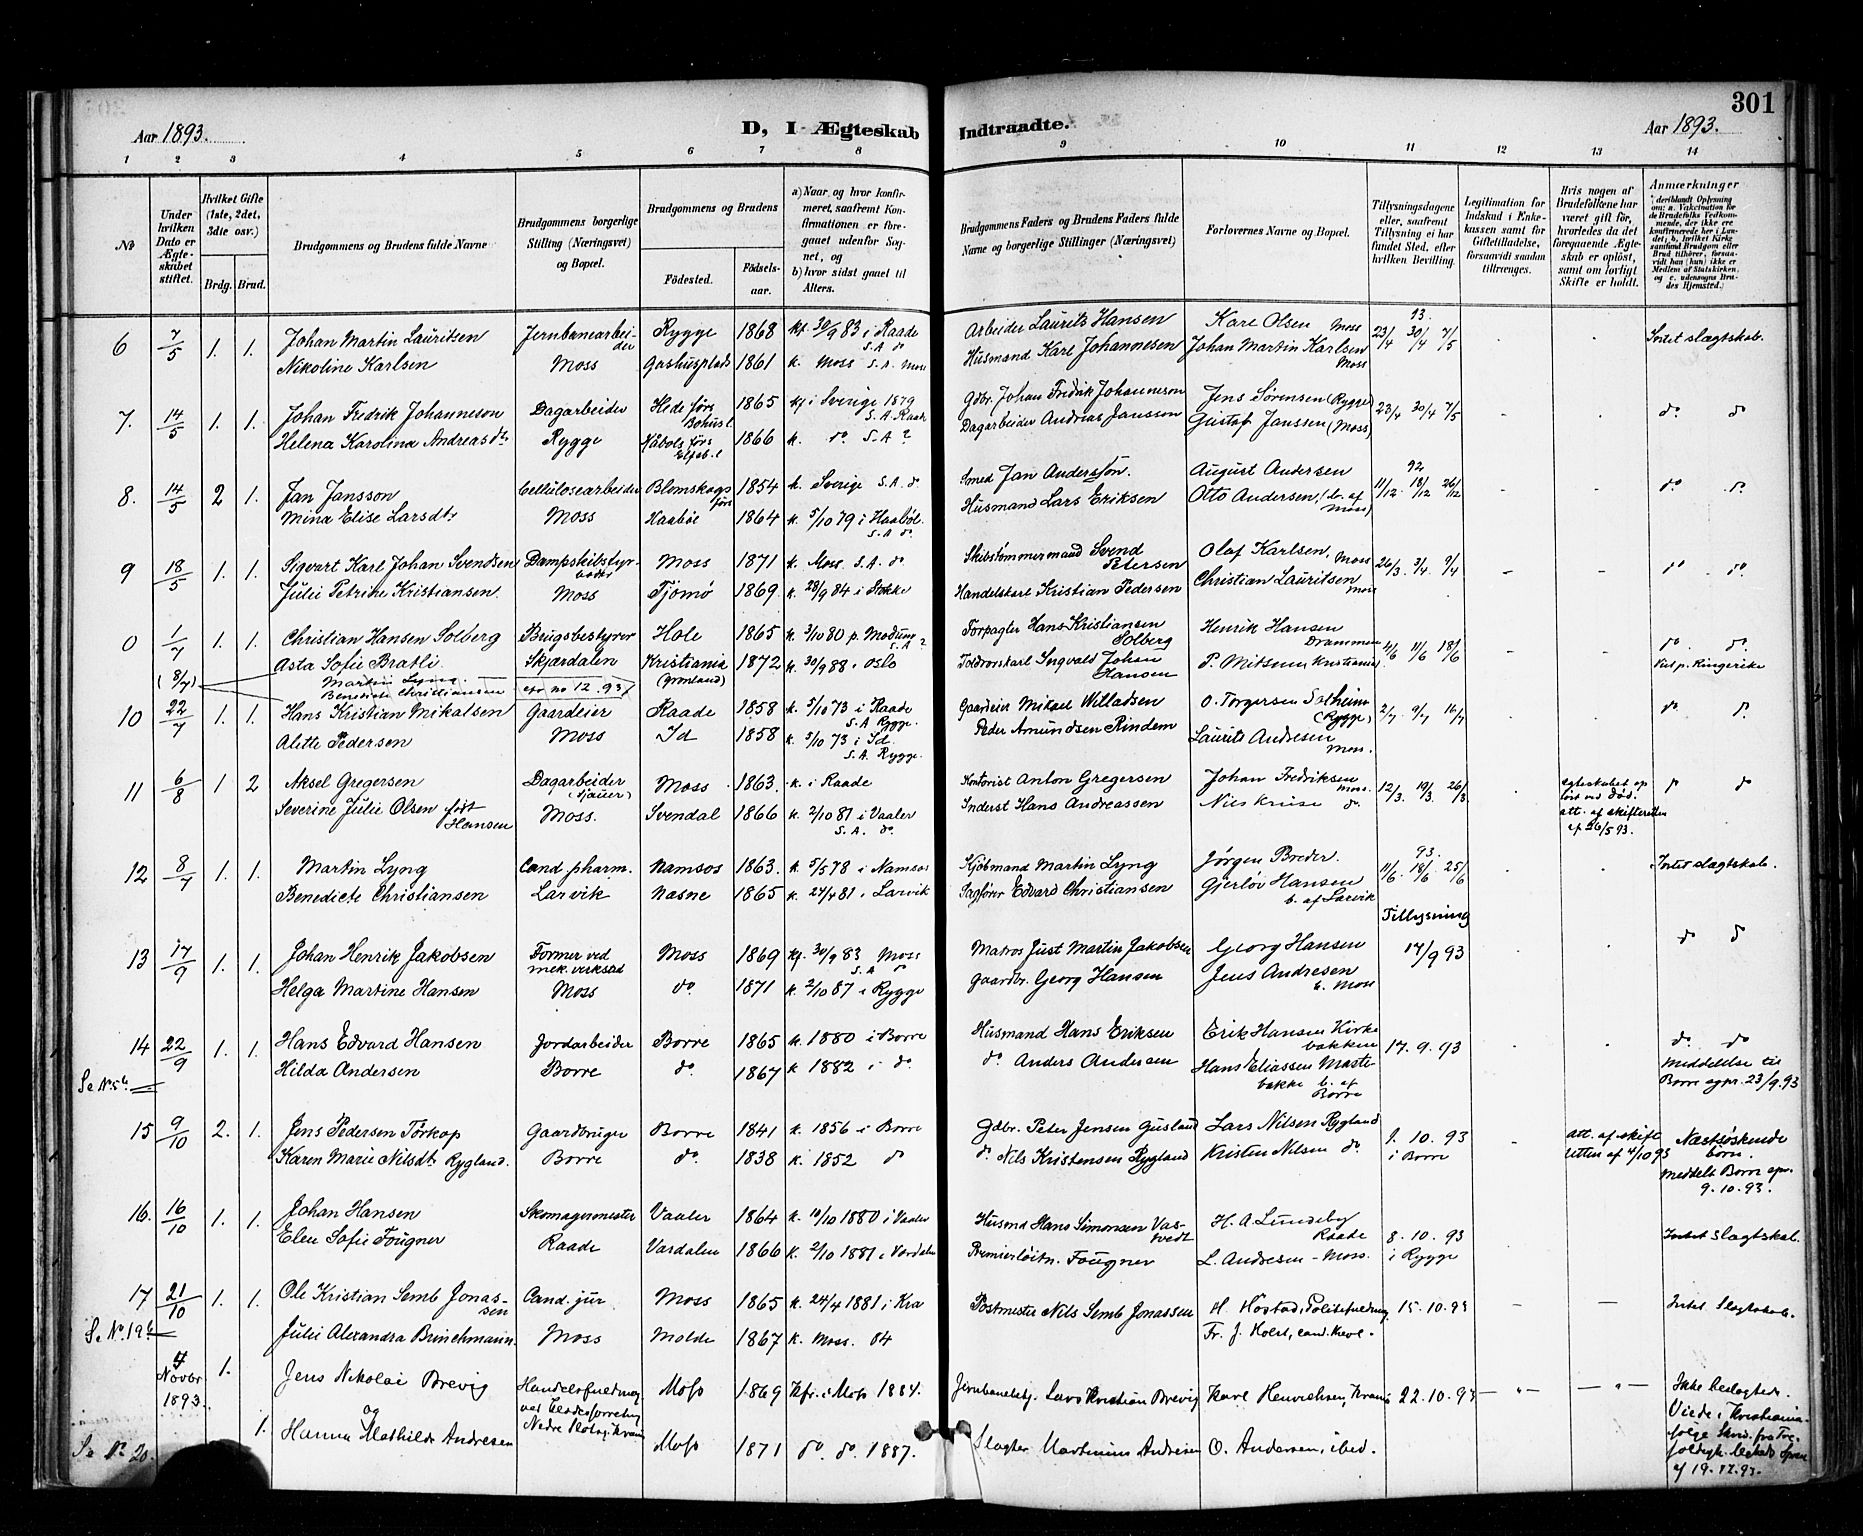 301
Aar 1893.
D, I Ægteskab Indtraadte.
Aar 1893.
1 2 3 4 5 6 7 8 9 10 11 12 13 14
No
Under hvilken Dato er Ægteskabet stiftet.
Hvilket Gifte (1ste, 2det, 3die osv.)
Brdg. Brud.
Brudgommens og Brudens fulde Navne
Brudgommens borgerlige Stilling (Næringsvei) og Bopæl.
Brudgommens og Brudens
Fødested.
Fødselsaar.
a) Naar og hvor konfirmeret, saafremt Konfirmationen er foregaaet udenfor Sognet, og
b) hvor sidst gaaet til Alters.
Brudgommens Faders og Brudens Faders fulde Navne og borgerlige Stillinger (Næringsvei)
Forlovernes Navne og Bopæl.
Tillysningsdagene eller, saafremt Tillysning ei har fundet Sted, efter hvilken Bevilling.
Legitimation for Indskud i Enkekassen samt for Giftetilladelse, forsaavidt saadan tiltrænges.
Hvis nogen af Brudefolkene har været gift før, hvorledes da det foregaaende Ægteskab er opløst, samt om lovligt Skifte er holdt.
Anmærkninger
6 7/5 1. 1. Johan Martin Lauritsen Jernbanearbeider Rygge 1868 kf. 30/9 83 i Raade S.A. do Arbeider Laurits Hansen Kare Olsen Moss 93. 23/4 30/4 7/5 Intet slagtskab.
Nikoline Karlsen Moss Gashusplads 1861 k. Moss S.A. Moss Husmand Karl Johannesen Johan Martin Karlsen Moss
7. 14/5 1. 1. Johan Fredrik Johanneson Dagarbeider Hede førs Bohusl 1865 kf i Sverige 1879 S.A. Raade Gdbr. Johan Fredrik Johanneson Jens Sørensen (Rygge) 23/4 30/4 7/5 do do
Helena Karolina Andreasdtr Rygge 1866 k. do S.A. ? Dagarbeider Andreas Jansson Gustaf Janssen (Moss)
8. 14/5 2 1. Jan Jansson Cellulosearbeider Blomskogs førs 1854 k. Sverige S.A. do Smed Jan Anderssøn. August Andersen 92 11/12 18/12 26/12 do do
Mina Elise Larsdtr Moss Haabøl 1864 k. 5/10 79 i Haabøl. S.A. do Husmand Lars Eriksen Otto Andersen, (b. af Moss)
9 18/5 1. 1. Sigvart Karl Johan Svendsen Dampskibsfyrbøder Moss 1871 k. Moss S.A. do Skibstømmermand Svend Petersen Olaf Karlsen, Moss 26/3 3/4 9/4 do do
Julie Petrine Kristiansen. Moss Tjømø 1869 k. 28/9 84 i Stokke Handelskarl Kristian Pedersen Christian Lauritsen Moss
0 1/7 1. 1. Christian Hansen Solberg Brugsbestyrer Hole 1865 k. 3/10 80 p. Modum S.A. ? Forpagter Hans Kristiansen Solberg Henrik Hansen Drammen 4/6 11/6 18/6 do do
Asta Sofie Bratli. Skjærdalen Kristiania (Grønland) 1872 k. 30/9 88 i Oslo Toldrorskarl Ingvald Johan Hansen Kristiania p. Ringerike
(8/7) Martin Lyng. Benedicte Christiansen no 12. 93
10 22/7 1. 1. Hans Kristian Mikalsen Gaardeier Raade 1858 k. 5/10 73 i Raade S.A. Rygge. Gaardeier Mikael Willadsen O. Torgersen Solheim (Rygge) 2/7 9/7 16/7 do do
Alette Pedersen Moss Id 1858 k. 5/10 73 i Id. S.A. Rygge. Peder Amundsen Rindem Laurits Andresen Moss.
11 6/8 1 2 Aksel Gregersen Dagarbeider (Sjauer) Moss 1863. k. i Raade Kontorist Anton Gregersen Johan Fredriksen Moss. 12/3 19/3 26/3 egteskabet opløst ved død. att. af skifteretten af 26/5 93. do do
Severine Julie Olsen født Hansen Moss. Svendal 1866 k. 2/10 81 i Vaaler S.A. do. Inderst Hans Andreassen Nils Kruse do.
12 8/7 1. 1. Martin Lyng Cand. pharm. Namsos 1863. k. 5/5 78 i Namsos Kjøbmand Martin Lyng Jørgen Breder. 93. 11/6 18/6 25/6 Intet slagtskab.
Benedicte Christiansen Larvik Nasne 1865 k. 24/4 81 i Larvik Sagfører Edvard Christiansen Gjerløv Hansen b. af Larvik
Tillysning
13 17/9 1. 1. Johan Henrik Jakobsen Former ved mek. verksted Moss 1869 kf. 30/9 83 Moss S.A. do Matros Just Martin Jakobsen Georg Hansen 17/9 93 do do
Helga Martine Hansen Moss do. 1871 k. 2/10 87 i Rygge Gaardbr. Georg Hansen Jens Andresen b. Moss
14 22/9 1. 1. Hans Edvard Hansen Jordarbeider Borre 1865 k. 1880 i Borre Husmand Hans Eriksen Erik Hansen Kirkebakken 17. 9. 93 do do
Hilda Andersen Borre do. 1867 k 1882 i do do Anders Andersen Hans Eliassen Mastebakke b. af Borre Meddelelse til Borre sgpr. 23/9. 93
15 9/10 2. 1. Jens Pedersen Tørkop Gaardbruger Borre 1841 k. 1856 i Borre Gdbr. Peter Jensen Gusland Lars Nilsen Rygland 1. 10. 93 i Borre att. af skifteretten af 4/10 93 Næstsøskendebørn.
Karen Marie Nilsdtr Rygland. Borre do. 1838 k. 1852 do do Nils Kristensen Rygland Kristen Nilsen do Meddelt Borre spr. 9. 10. 93.
16. 16/10 1. 1. Johan Hansen Skomagermester Vaaler 1864 k. 10/10 1880 i Vaaler Husmd Hans Simonsen H. A. Lundeby Raade 8. 10. 93 i Rygge Intet slagtskab.
Elen Sofie Fougner Raade Værdalen 1866 k. 2/10 1881 i Værdalen Premierløitn. Fougner L. Andresen – Moss.
17 21/10 1. 1. Ole Kristian Semb Jonassen Cand. jur Moss 1865 k. 24/4 1881 i Kra Postmester Nils Semb Jonassen H. Høstad, Politifuldmæg 15. 10. 93 Intet Slagtskab.
Julie Alexandra Brinchmann. Moss Molde 1867 k. Moss. 84 Fr. J. Holst, cand. theol.
4 Novbr 1893. 1. Jens Nikolai Brevig Moss 1869 Kfr. i Moss 1884. Jernbanebetj. Lars Kristian Brevig Karl Henrichsen, Krania 22. 10. 93 Ikke beslegtede.
og
1. Hanna Mathilde Andresen Moss 1871 do do 1887. Slagter Martinius Andresen O. Andersen, ibid. Viede i Kristiania
af 19. 12. 93.
Se No 20.